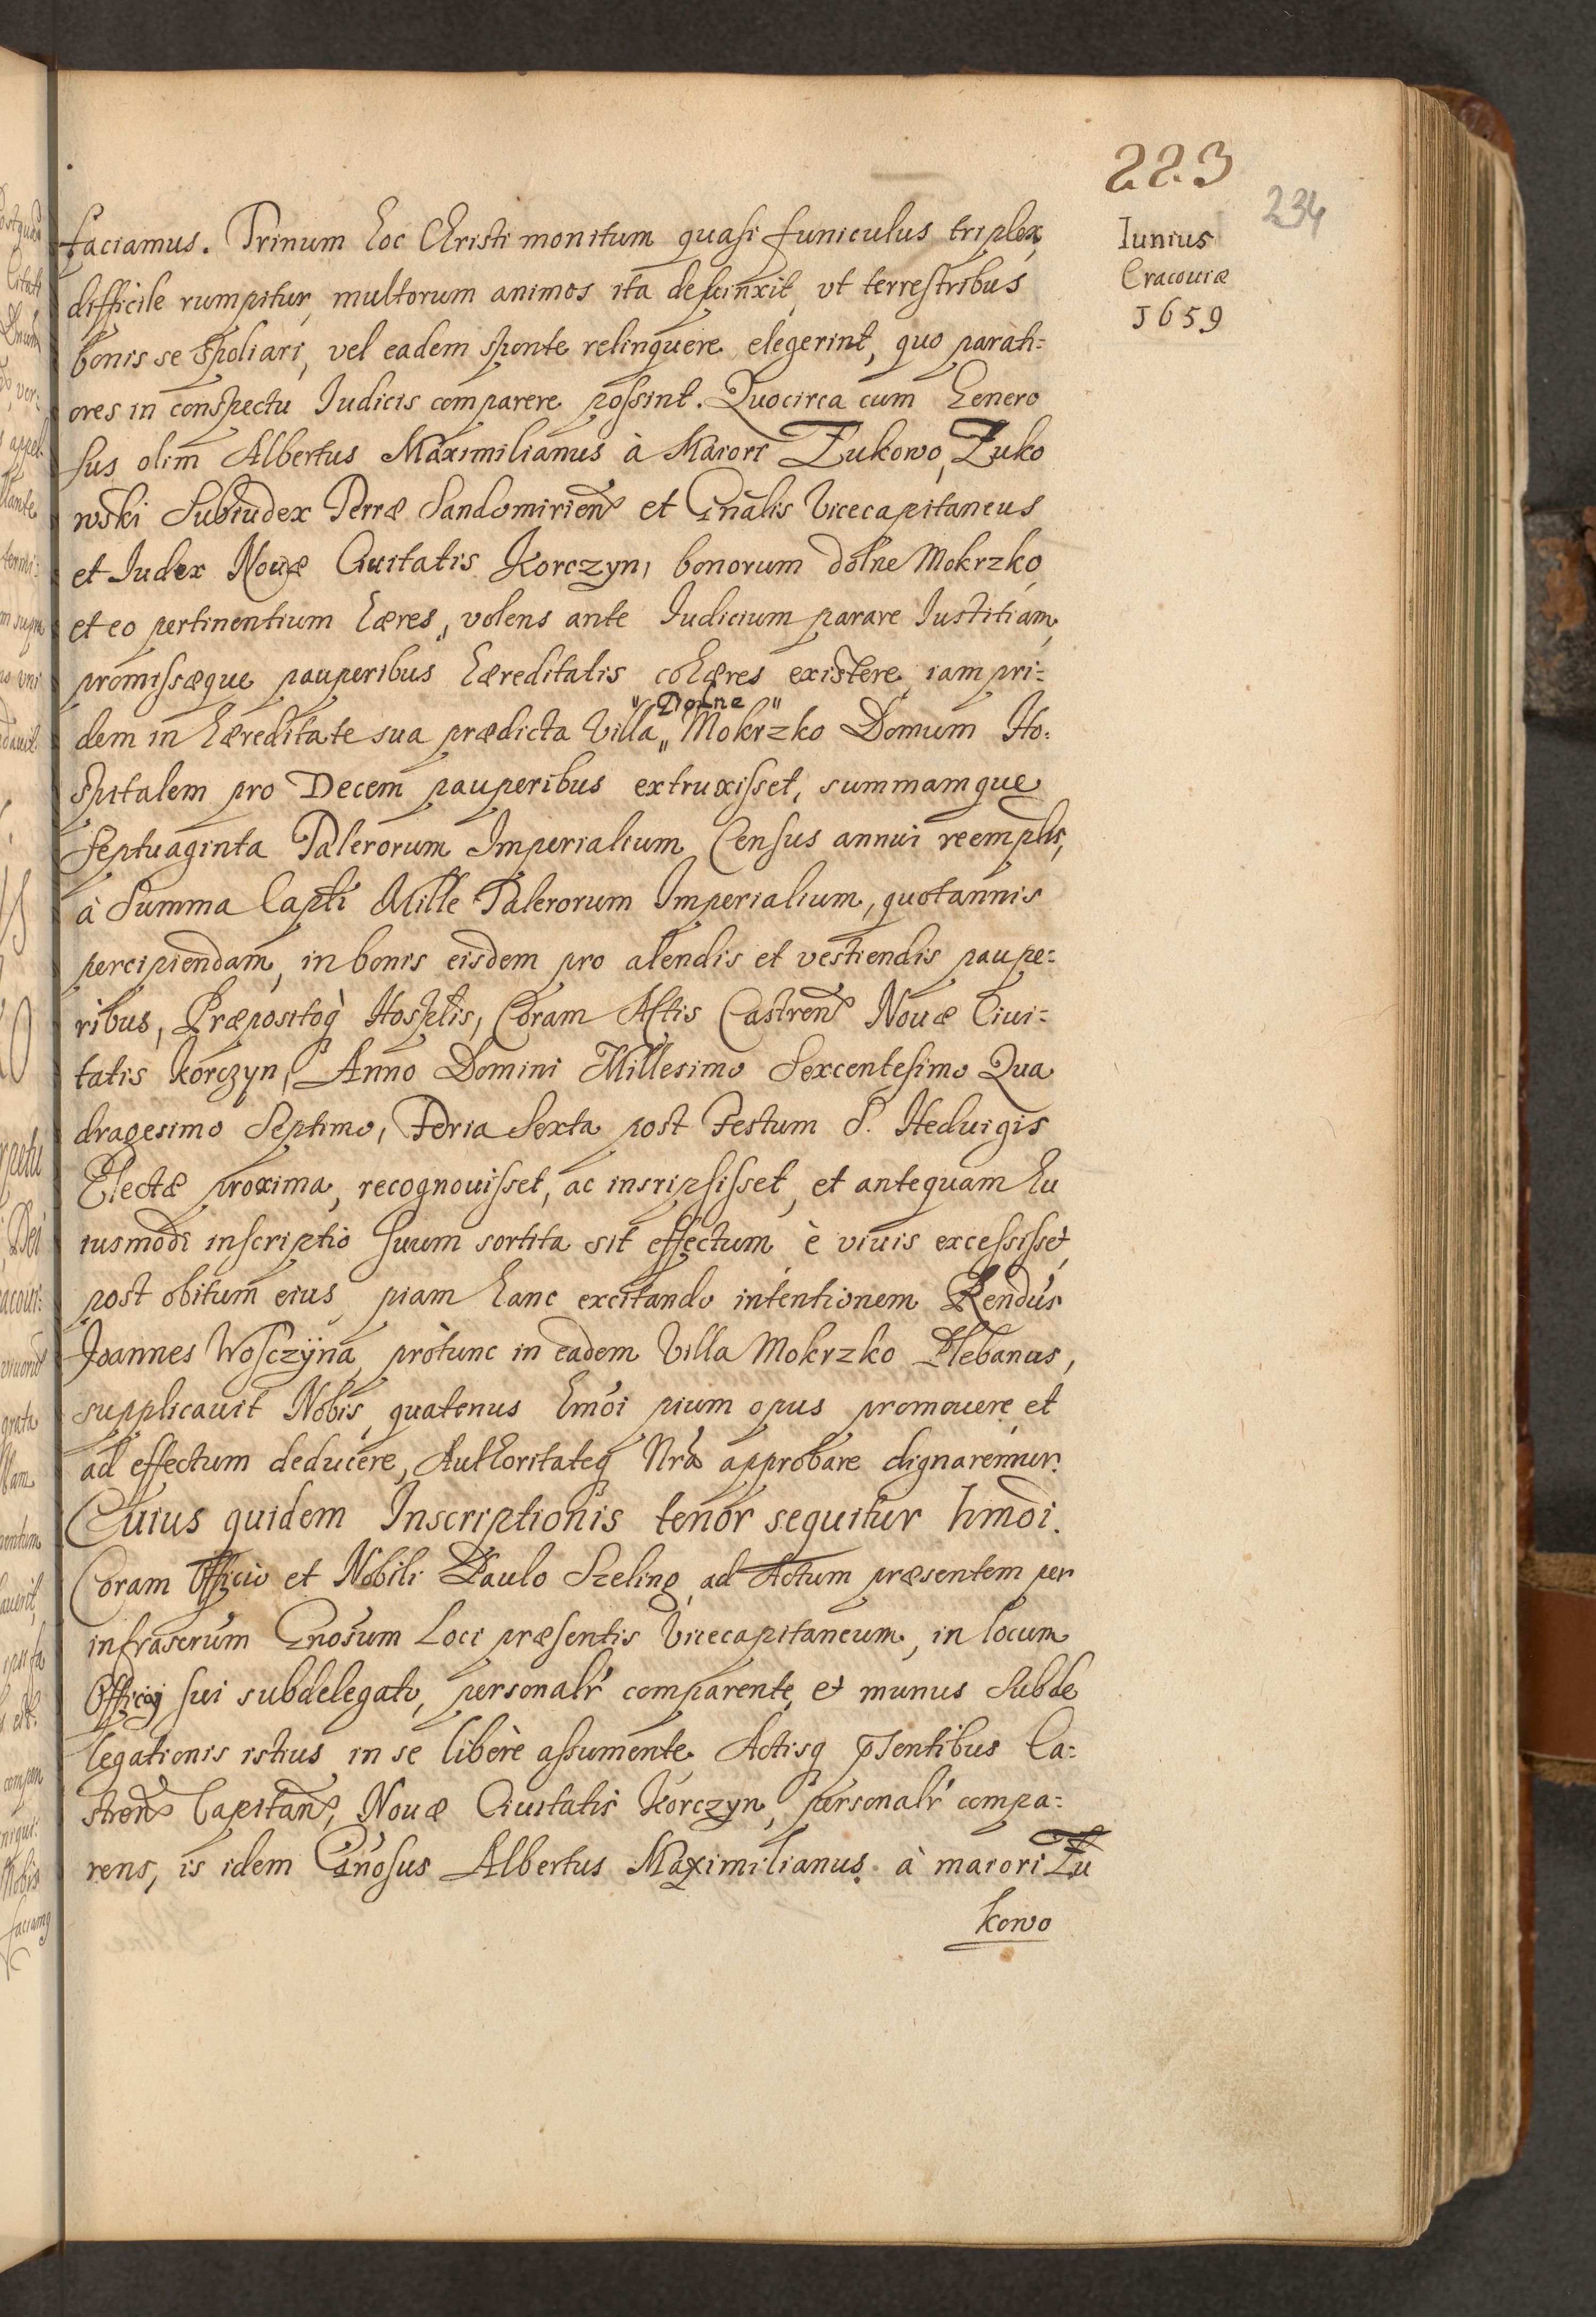 223
234
Iunius
Cracouiæ
1659
faciamus. Trinum hoc Christi monitum quasi funiculus triplex,
difficile rumpitur, multorum animos ita deuinxit, vt terrestribus
bonis se spoliari, vel eadem sponte relinquere elegerint, quo parati=
ores in conspectu Iudicis comparere possint. Quocirca cum Genero
sus olim Albertus Maximilianus à Maiori Żukowo, Żuko
wski Subiudex Terræ Sandomirien̄ et Gn̄alis Vicecapitaneus
et Iudex Nouæ Ciuitatis Korczyn, bonorum dolne Mokrzko,
et eo pertinentium hæres, volens ante Iudicium parare Iustitiam,
promissæque pauperibus hæreditatis cohæres existere, iam pri=
dem in hæreditate sua prædicta Villa „ Mokrzko Domum Ho=
" Dolne "
spitalem pro Decem pauperibus extruxisset, summamque
septuaginta Talerorum Imperialium Census annui reemplis,
à Summa Capli Mille Talerorum Imperialium, quotannis
percipiendam, in bonis eisdem pro alendis et vestiendis paupe=
ribus, Præpositoq́ Hosplis, Coram Actis Castren̄ Nouæ Ciui=
tatis Korczyn, Anno Domini Millesimo Sexcentesimo Qua
dragesimo Septimo, Feria Sexta post Festum S. Heduigis
Electæ proxima, recognouisset, ac insripsisset, et antequam hu
iusmodi inscriptio suum sortita sit effectum, è viuis excessisset,
post obitum eius, piam hanc excitando intentionem Rendus
Joannes Wosczÿna, protunc in eadem Villa Mokrzko Plebanus,
supplicauit Nobis, quatenus hmoi pium opus promouere, et
ad effectum deducere, Authoritateq Nrã approbare dignaremur.
Cuius quidem Inscriptionis tenor sequitur hmodi.
Coram Officio et Nobili Paulo Szeling, ad Actum præsentem per
infrascrum Gnosum Loci præsentis Vicecapitaneum, in locum
Officij sui subdelegato, personalr comparente, et munus Subde
legationis istius in se liberè assumente, Actisq p̄sentibus Ca=
stren̄ Capitan̄, Nouæ Ciuitatis Korczyn, personalr compa=
rens, is idem Gnosus Albertus Maximilianus à maiori Żu
kowo